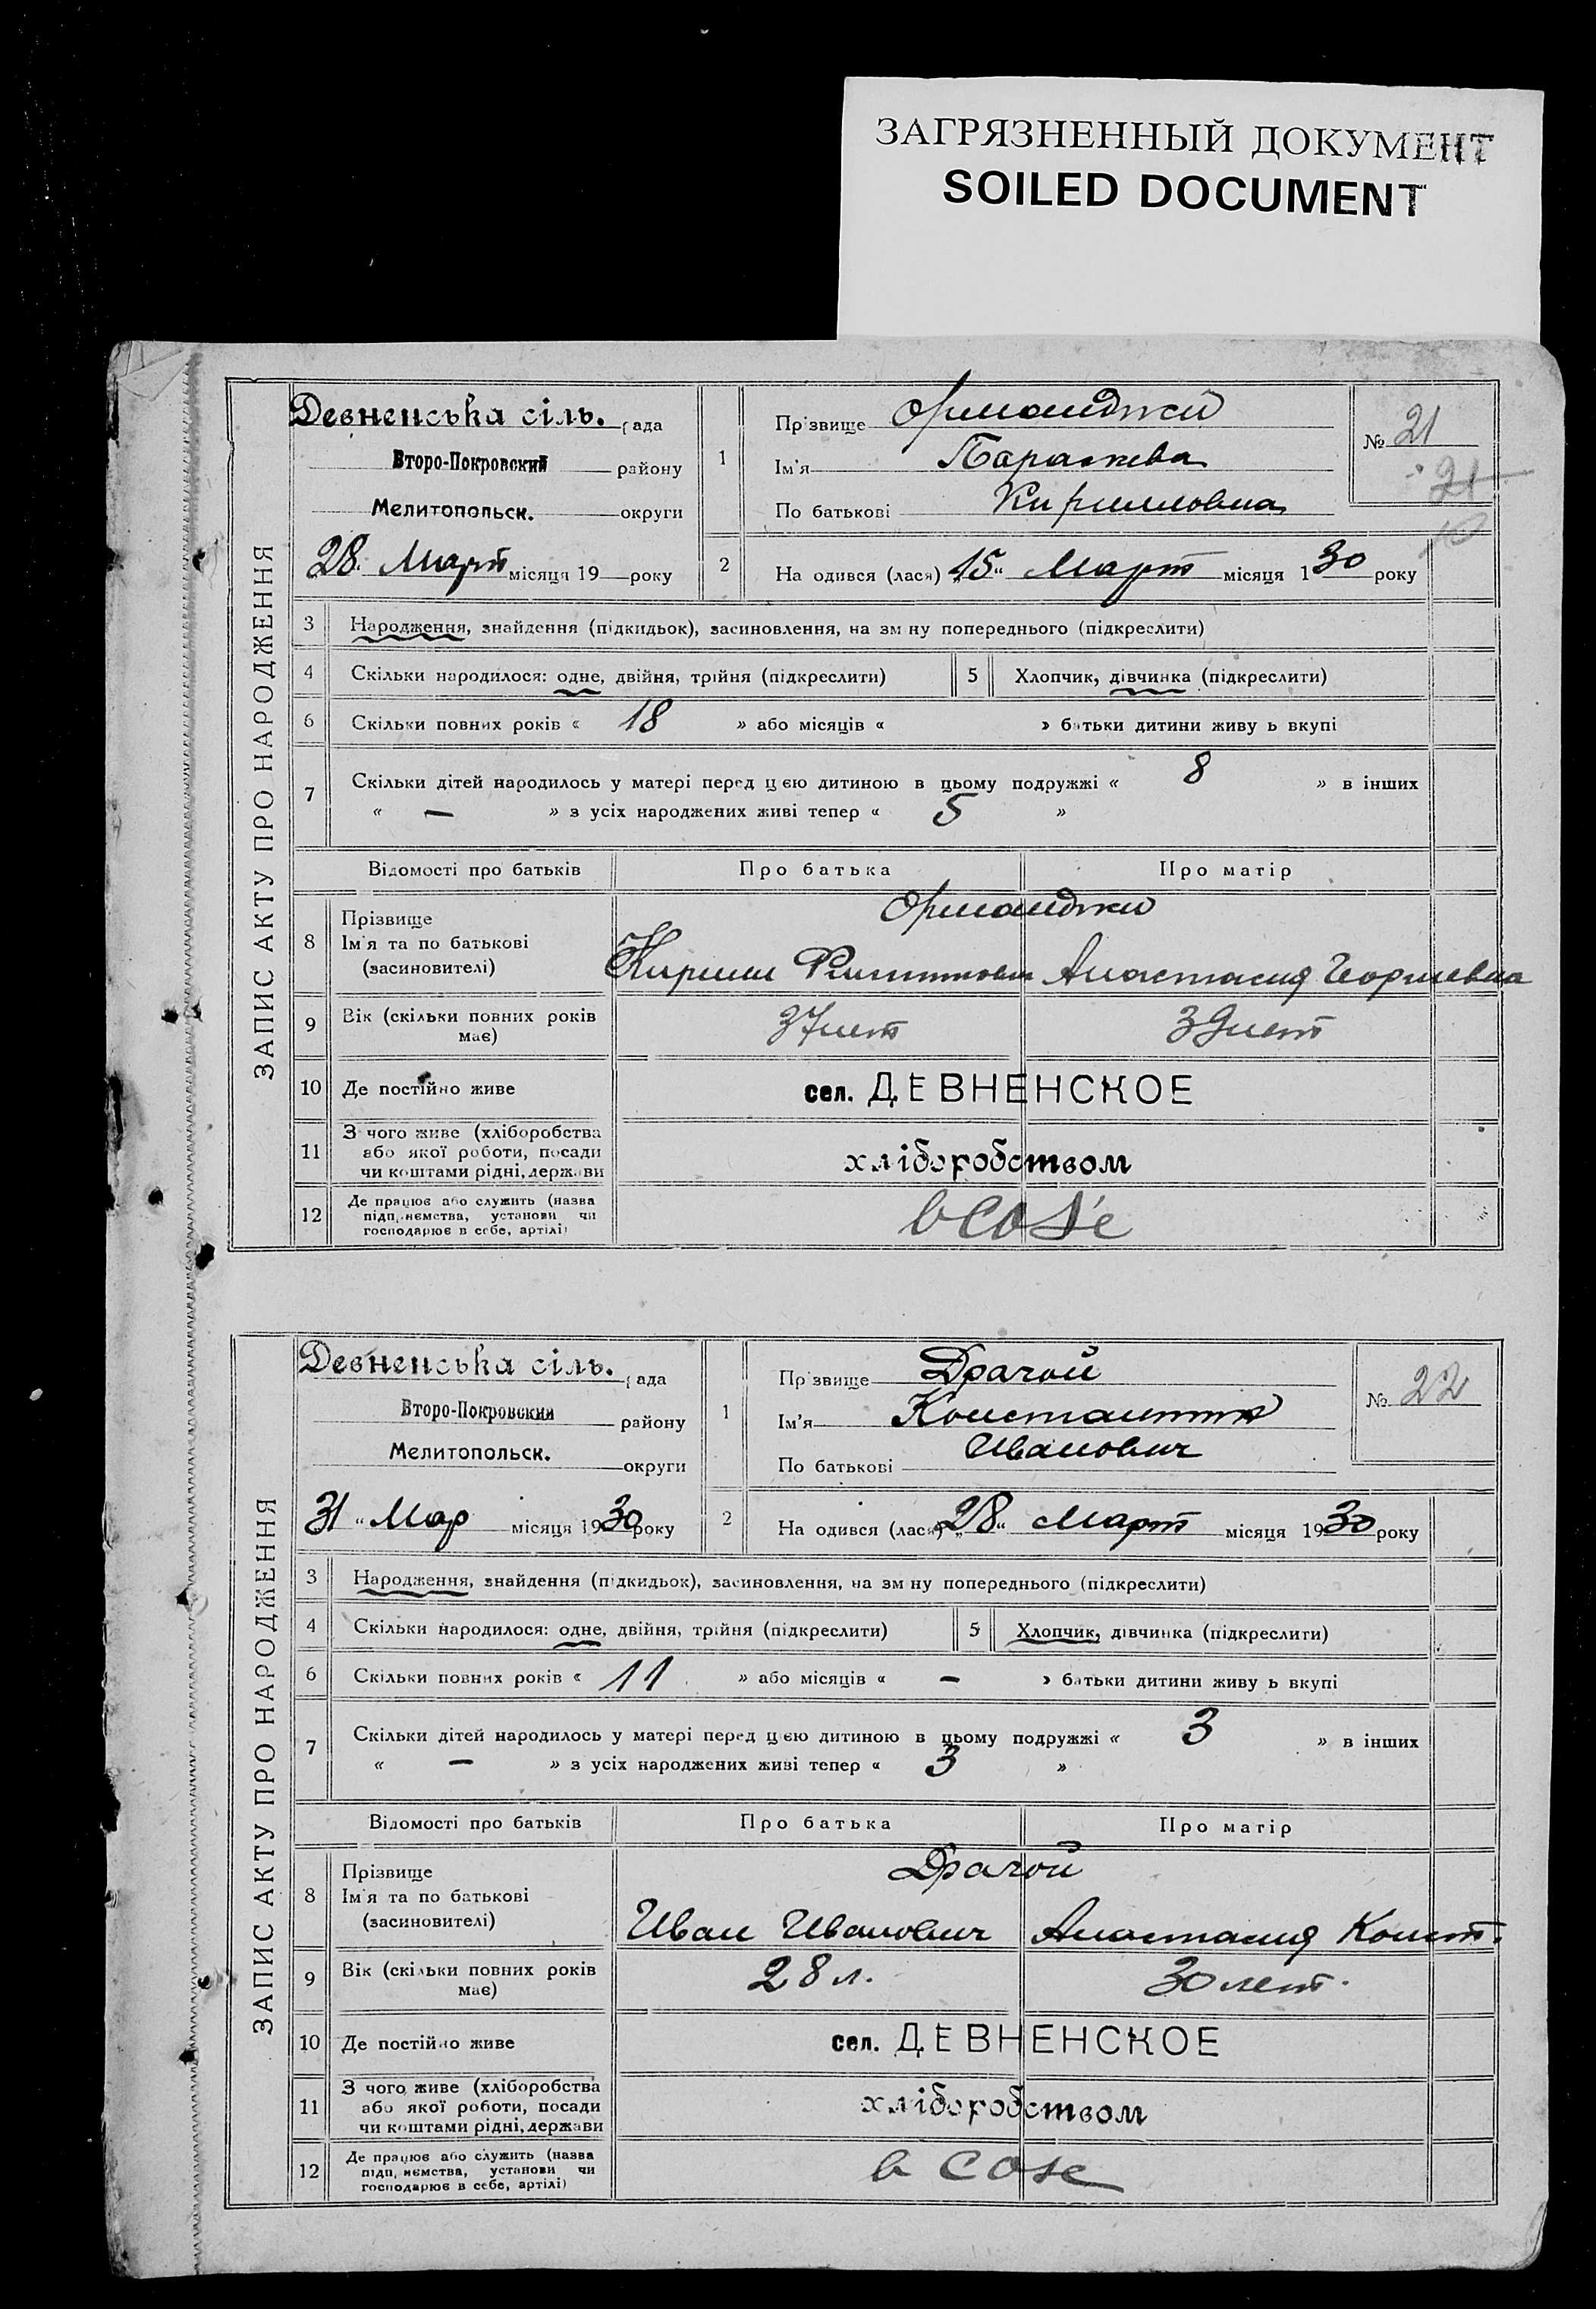 ЗАГРЯЗНЕННЫЙ ДОКУМЕНТ
SOILED DOCUMENT
ЗАПИС АКТУ ПРО НАРОДЖЕННЯ
Девненська сіль. рада
Второ-Покровский району
Мелитопольск. округи
28 Март місяця 19 року
1
Прізвище Орманджи
Ім'я Параскева
По батькові Кирилловна
№ 21
21
2
На одився (лася) „15“ Март місяця 1930 року
3 Народження, знайдення (підкидьок), засиновлення, на зм ну попереднього (підкреслити)
4 Скільки народилося: одне, двійня, трійня (підкреслити) 5 Хлопчик, дівчинка (підкреслити)
6 Скільки повних років « 18 » або місяців « » батьки дитини живу ь вкупі
7 Скільки дітей народилось у матері перед цією дитиною в цьому подружжі « 8 » в інших
« — » з усіх народжених живі тепер « 5 »
Відомості про батьків Про батька Про матір
8 Прізвище Орманджи
Ім'я та по батькові
(засиновителі) Кирилл Филиппович Анастасия Георгиевна
9 Вік (скільки повних років має) 37 лет 39 лет
10 Де постійно живе сел. ДЕВНЕНСКОЕ
11 З чого живе (хліборобства
або якої роботи, посади хліборобством
чи коштами рідні, держави
12 Де працює або служить (назва
підп.иємства, установи чи в созе
господарює в себе, артілі)
ЗАПИС АКТУ ПРО НАРОДЖЕННЯ
Девненська сіль. рада
Второ-Покровский району
Мелитопольск. округи
31 “ Мар місяця 1930 року
1
Прізвище Драгой
Ім'я Константин
По батькові Иванович
№ 22
2
На одився (лася) „28“ Март місяця 1930 року
3 Народження, знайдення (підкидьок), засиновлення, на зм ну попереднього (підкреслити)
4 Скільки народилося: одне, двійня, трійня (підкреслити) 5 Хлопчик, дівчинка (підкреслити)
6 Скільки повних років « 11 » або місяців « — » батьки дитини живу ь вкупі
7 Скільки дітей народилось у матері перед цією дитиною в цьому подружжі « 3 » в інших
« — » з усіх народжених живі тепер « 3 »
Відомості про батьків Про батька Про матір
8 Прізвище Драгой
Ім'я та по батькові
(засиновителі) Иван Иванович Анастасия Конст.
9 Вік (скільки повних років має) 28 л. 30 лет.
10 Де постійно живе сел. ДЕВНЕНСКОЕ
11 З чого живе (хліборобства
або якої роботи, посади хліборобством
чи коштами рідні, держави
12 Де працює або служить (назва
підп.иємства, установи чи в созе
господарює в себе, артілі)